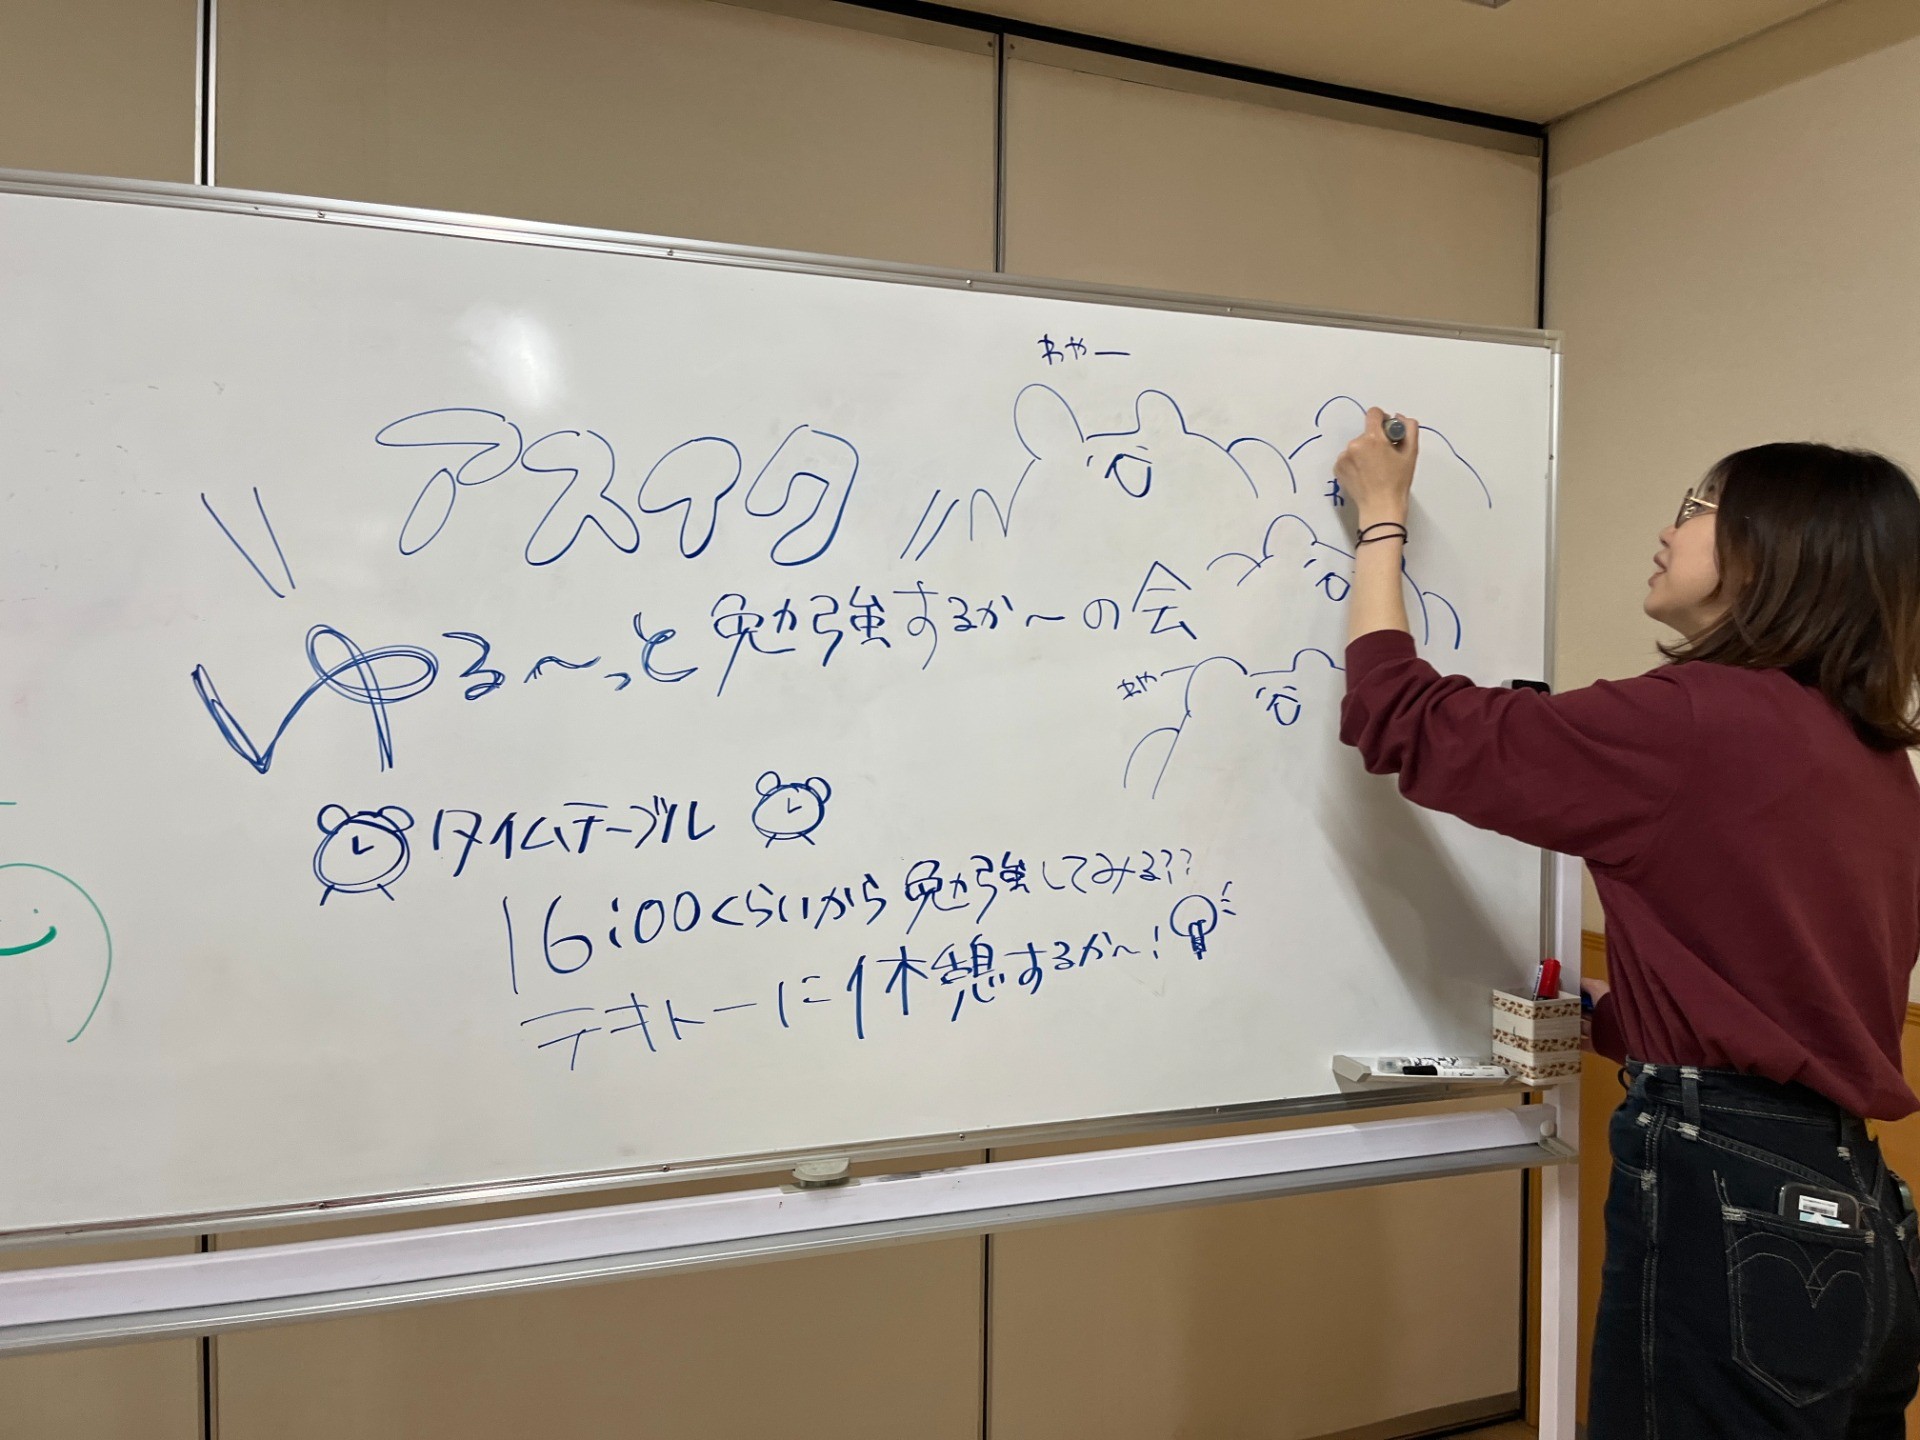 わやー
アスイク
ゆる〜っと勉強するか〜の会
わやー
タイムテーブル
16:00くらいから勉強してみる??
テキトーに休憩するか〜!